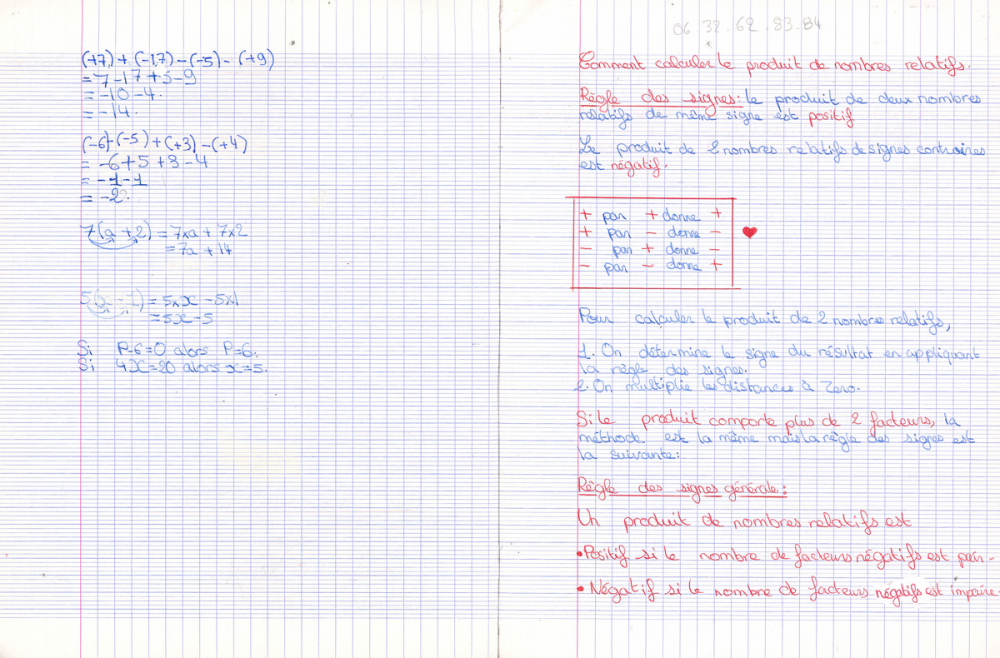 (+7) + (-17) - (-5) - (+9)
= 7-17+5-9
= -10-4.
= -14.
(-6)-(-5) + (+3) - (+4)
= -6+5+3-4
= -1-1
= -2.
7(a+2) = 7xa + 7x2
= 7a + 14
5(x-1) = 5xx - 5x1
= 5x-5
Si P-6=0 alors P=6.
Si 4x=20 alors x=5.
06.32.62.83.84
Comment calculer le produit de nombres relatifs.
Règle des signes: le produit de deux nombres
relatifs de même signe est positif
Le produit de 2 nombres relatifs de signes contraires
est négatif.
+ par + donne +
+ par - donne -
- par + donne -
- par - donne +
Pour calculer le produit de 2 nombre relatifs,
1. On détermine le signe du résultat en appliquant
la règle des signes.
2. On multiplie les distances à zero.
Si le produit comporte plus de 2 facteurs, la
méthode est la même mais la règle des signes est
la suivante:
Règle des signes générale:
Un produit de nombres relatifs est
• Positif si le nombre de facteurs négatifs est pair.
• Négatif si le nombre de facteurs négatifs est impaire.